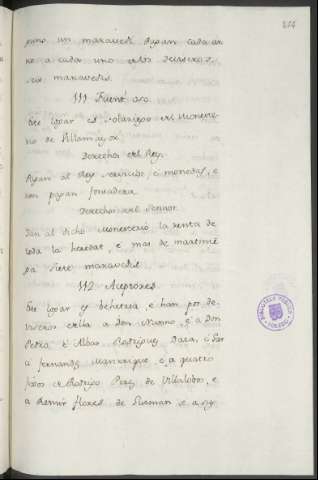 214
pino un maravedi dapan cada an
no a cada uno
seis maravedis.
111 Fuent
Este logar es solariego del Moneste-
rio de Villamayor
Derechos del Rey.
Dan al Rey servicios, e monedas, e
non pagan fonsadera.
Derechos del Sennor.
Dan al dicho Monesterio la renta de
toda la heredat, e mas de martinie
ga siete maravedis
112
Este logar es behetria, e han por de-
viseros a don Nunno, e a Don
Pedro e Alvar Rodriguez Daza, e Gar
ci fernandez Manrrique, e a quatro
fijos de Rodrigo Perez de Villalobos, e
a Ramir flores de Gusman, e a Dy
BIBLIOTECA PUBLICA
TOLEDO